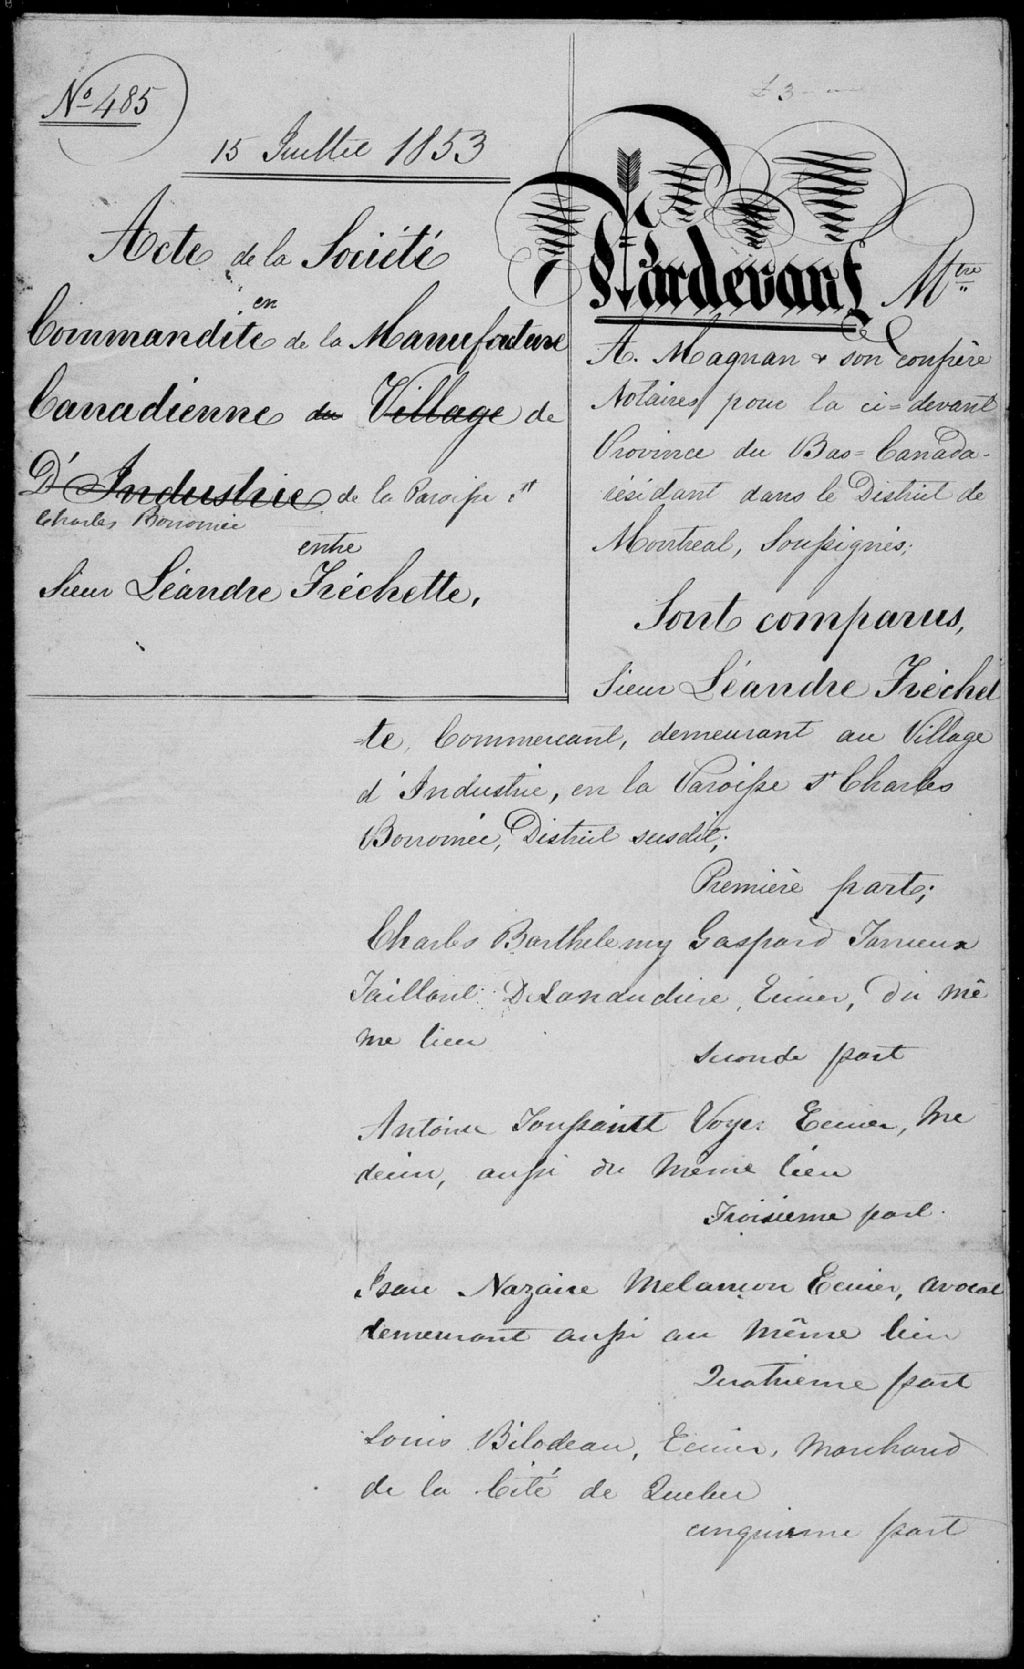 No 485
15 Juillet 1853
Acte de la Société
en
Commandite de la Manufacture
Canadienne du Village de
D'Industrie de la Paroisse St
Charles Borromée
entre
Sieur Léandre Fréchette,
£3
Pardevant Mtre
A. Magnan & son confrère
Notaires pour la ci=devant
Province du Bas=Canada
résidant dans le District de
Montreal, Soussignés;
Sont comparus,
Sieur Léandre Fréchet
-te, Commercant, demeurant au Village
d'Industrie, en la Paroisse St Charles
Borromée, District susdit;
Première part;
Charles Barthelemy Gaspard Tarrieux
Taillant DeLanaudiere, Ecuier, du mê
me lieu
Seconde part
Antoine Toussaint Voyer Ecuier, Me
decin, aussi du même lieu
Troisieme part.
Isaie Nazaire Melançon Ecuier, avocat
demeurant aussi au même lieu
Quatrieme part
Louis Bilodeau, Ecuier, Marchand
de la Cité de Quebec
cinquieme part